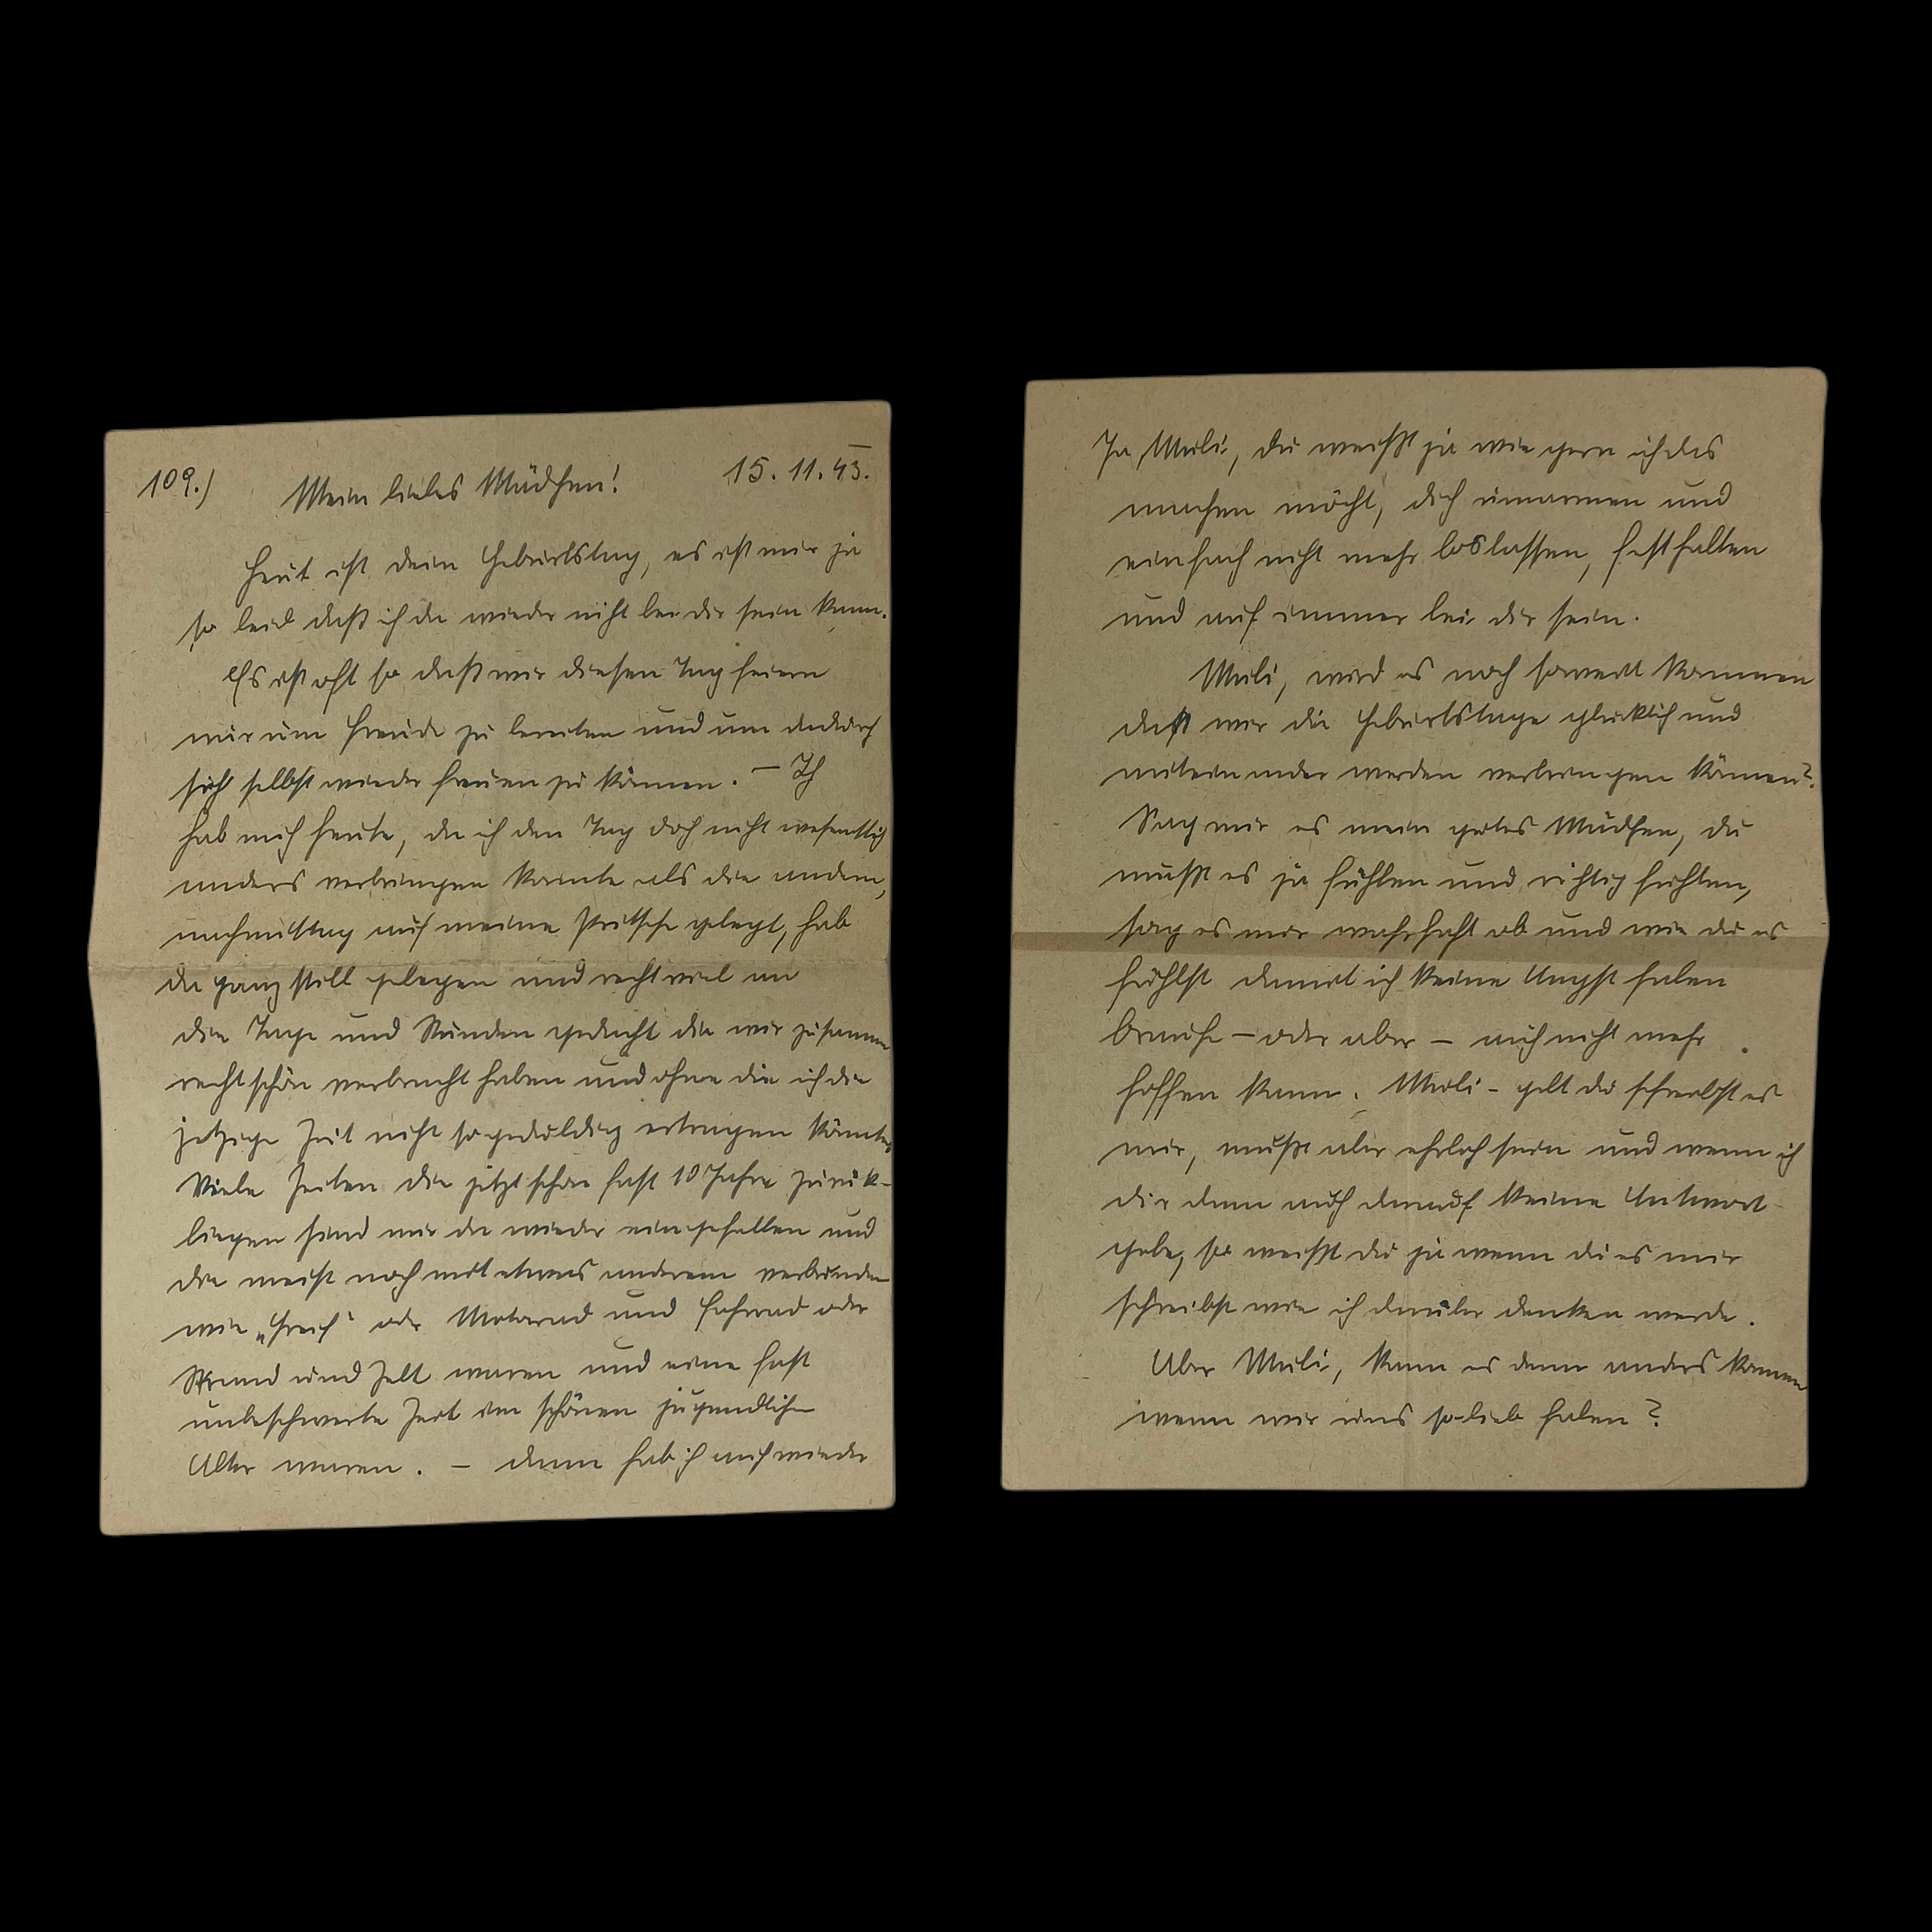 109.) Mein liebes Mädchen! 15. 11. 43.
Heut ist dein Geburtstag, es ist mir ja
so leid daß ich da wieder nicht bei dir sein kann.
Es ist oft so daß wir diesen Tag feiern
nur um Freude zu bereiten und um dadurch
sich selbst wieder freuen zu können. – Ich
hab mich heute, da ich den Tag doch nicht wesentlich
anders verbringen konnte als die andern,
nachmittag auf meine Pritsche gelegt, hab
da ganz still gelegen und recht viel an
die Tage und Stunden gedacht die wir zusammen
recht schön verbracht haben und ohne die ich die
jetzige Zeit nicht so geduldig ertragen könnte.
Viele Zeiten die jetzt schon fast 10 Jahre zurück-
liegen sind mir da wieder eingefallen und
die meist noch mit etwas anderem verbunden
wie „ oder Motorrad und Fahrrad oder
Strand und Zelt waren und eine fast
unbeschwerte Zeit im schönen jugendlichen
Alter waren. – dann hab ich auch wieder
Ja, Muli, du weißt ja wie gern ich das
machen möcht, dich umarmen und
einfach nicht mehr loslassen, festhalten
und auf immer bei dir sein.
Muli, wird es noch soweit kommen
daß wir die Geburtstage glücklich und
miteinander werden verbringen können?
Sag mir es mein gutes Mädchen, du
mußt es ja fühlen und richtig fühlen,
sag es mir wahrhaft ob und wie du es
fühlst damit ich keine Angst haben
brauche – oder aber – auch nicht mehr
hoffen kann. Muli – gelt du schreibst es
mir, mußt aber ehrlich sein und wenn ich
dir dann auch darauf keine Antwort
gebe, so weißt du ja wenn du es mir
schreibst wie ich darüber denken werde.
Aber Muli, kann es denn anders kommen
wenn wir uns so lieb haben?